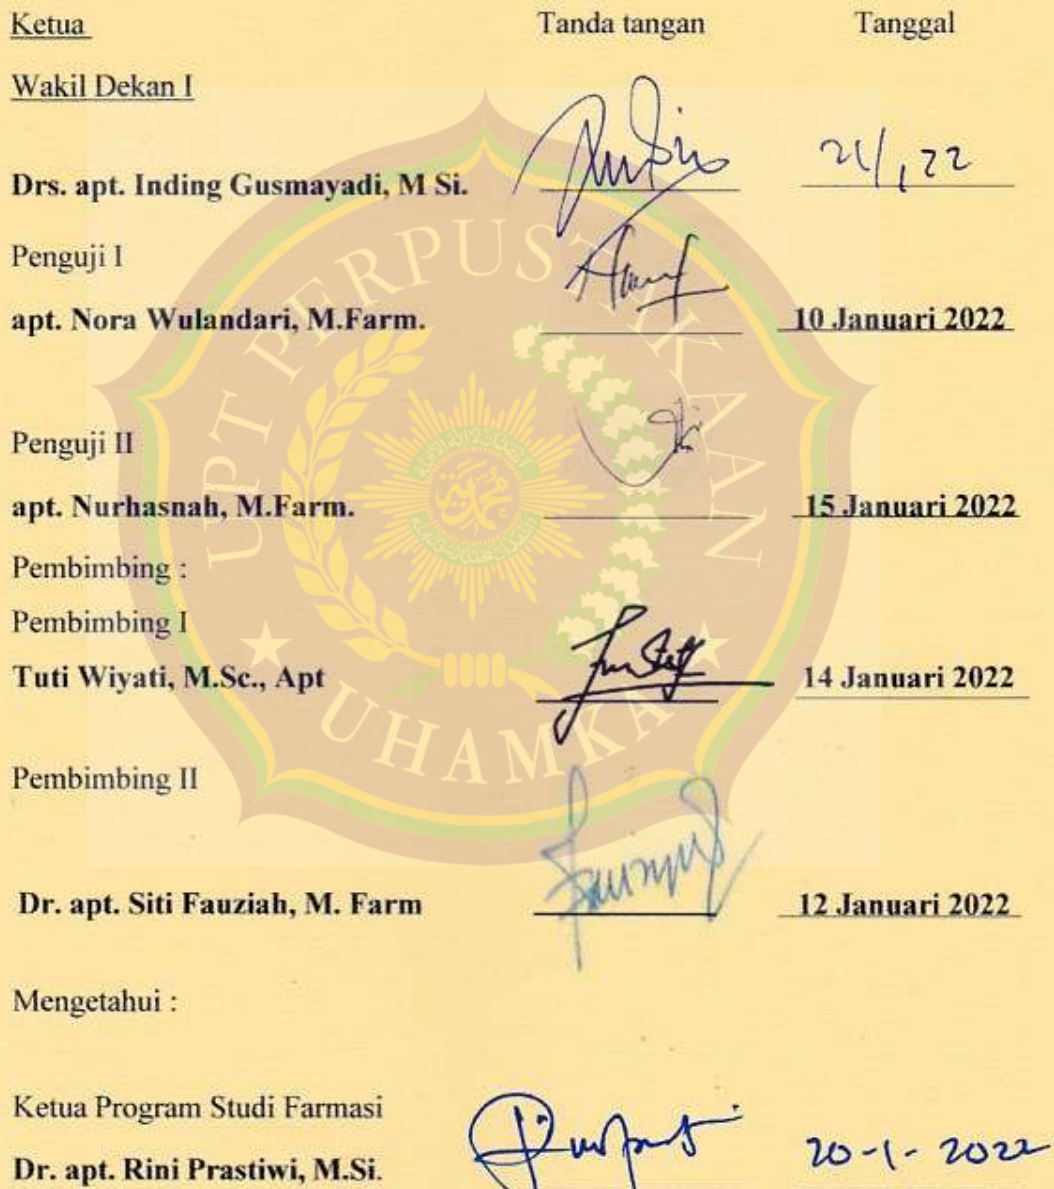 Ketua Tanda tangan Tanggal
Wakil Dekan I
Drs. apt. Inding Gusmayadi, M Si. 21/1 22
Penguji I
apt. Nora Wulandari, M.Farm. 10 Januari 2022
Penguji II
apt. Nurhasnah, M.Farm. 15 Januari 2022
Pembimbing :
Pembimbing I
Tuti Wiyati, M.Sc., Apt 14 Januari 2022
Pembimbing II
Dr. apt. Siti Fauziah, M. Farm 12 Januari 2022
Mengetahui :
Ketua Program Studi Farmasi
Dr. apt. Rini Prastiwi, M.Si. 20-1-2022
UPT PERPUSTAKAAN
UHAMKA